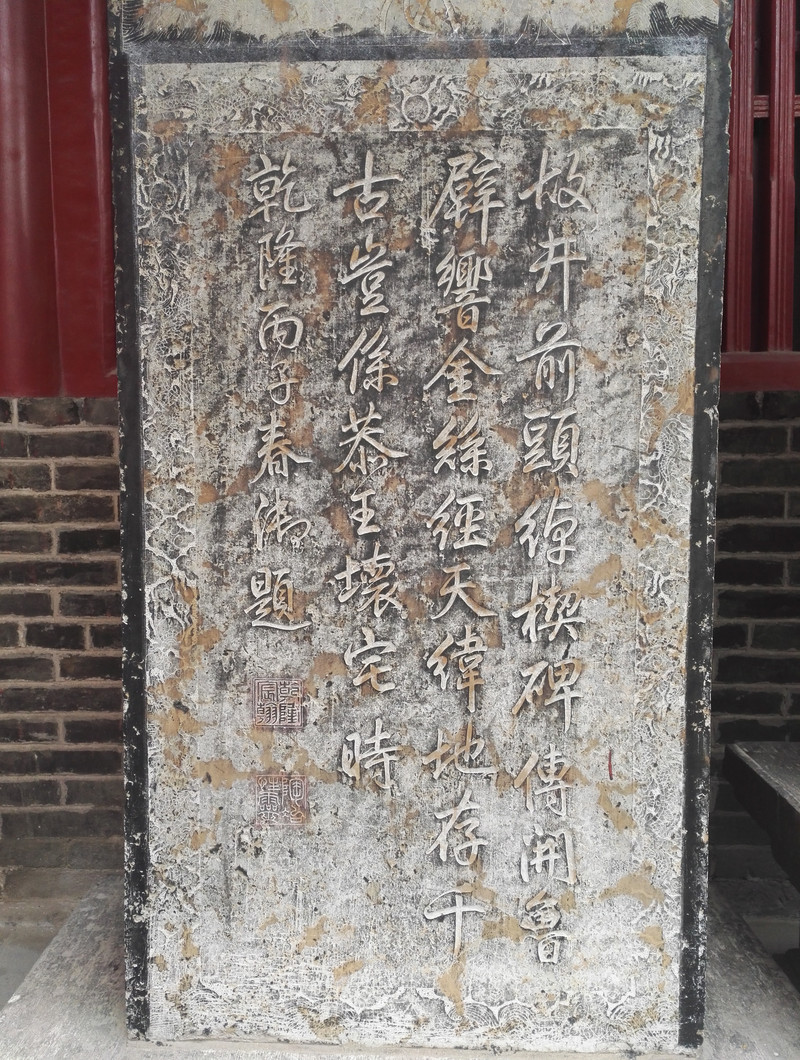 故井前頭綽楔碑傳聞魯
壁響金絲經天緯地存千
古豈係恭王壞宅時
乾隆丙子春御題
乾隆宸翰